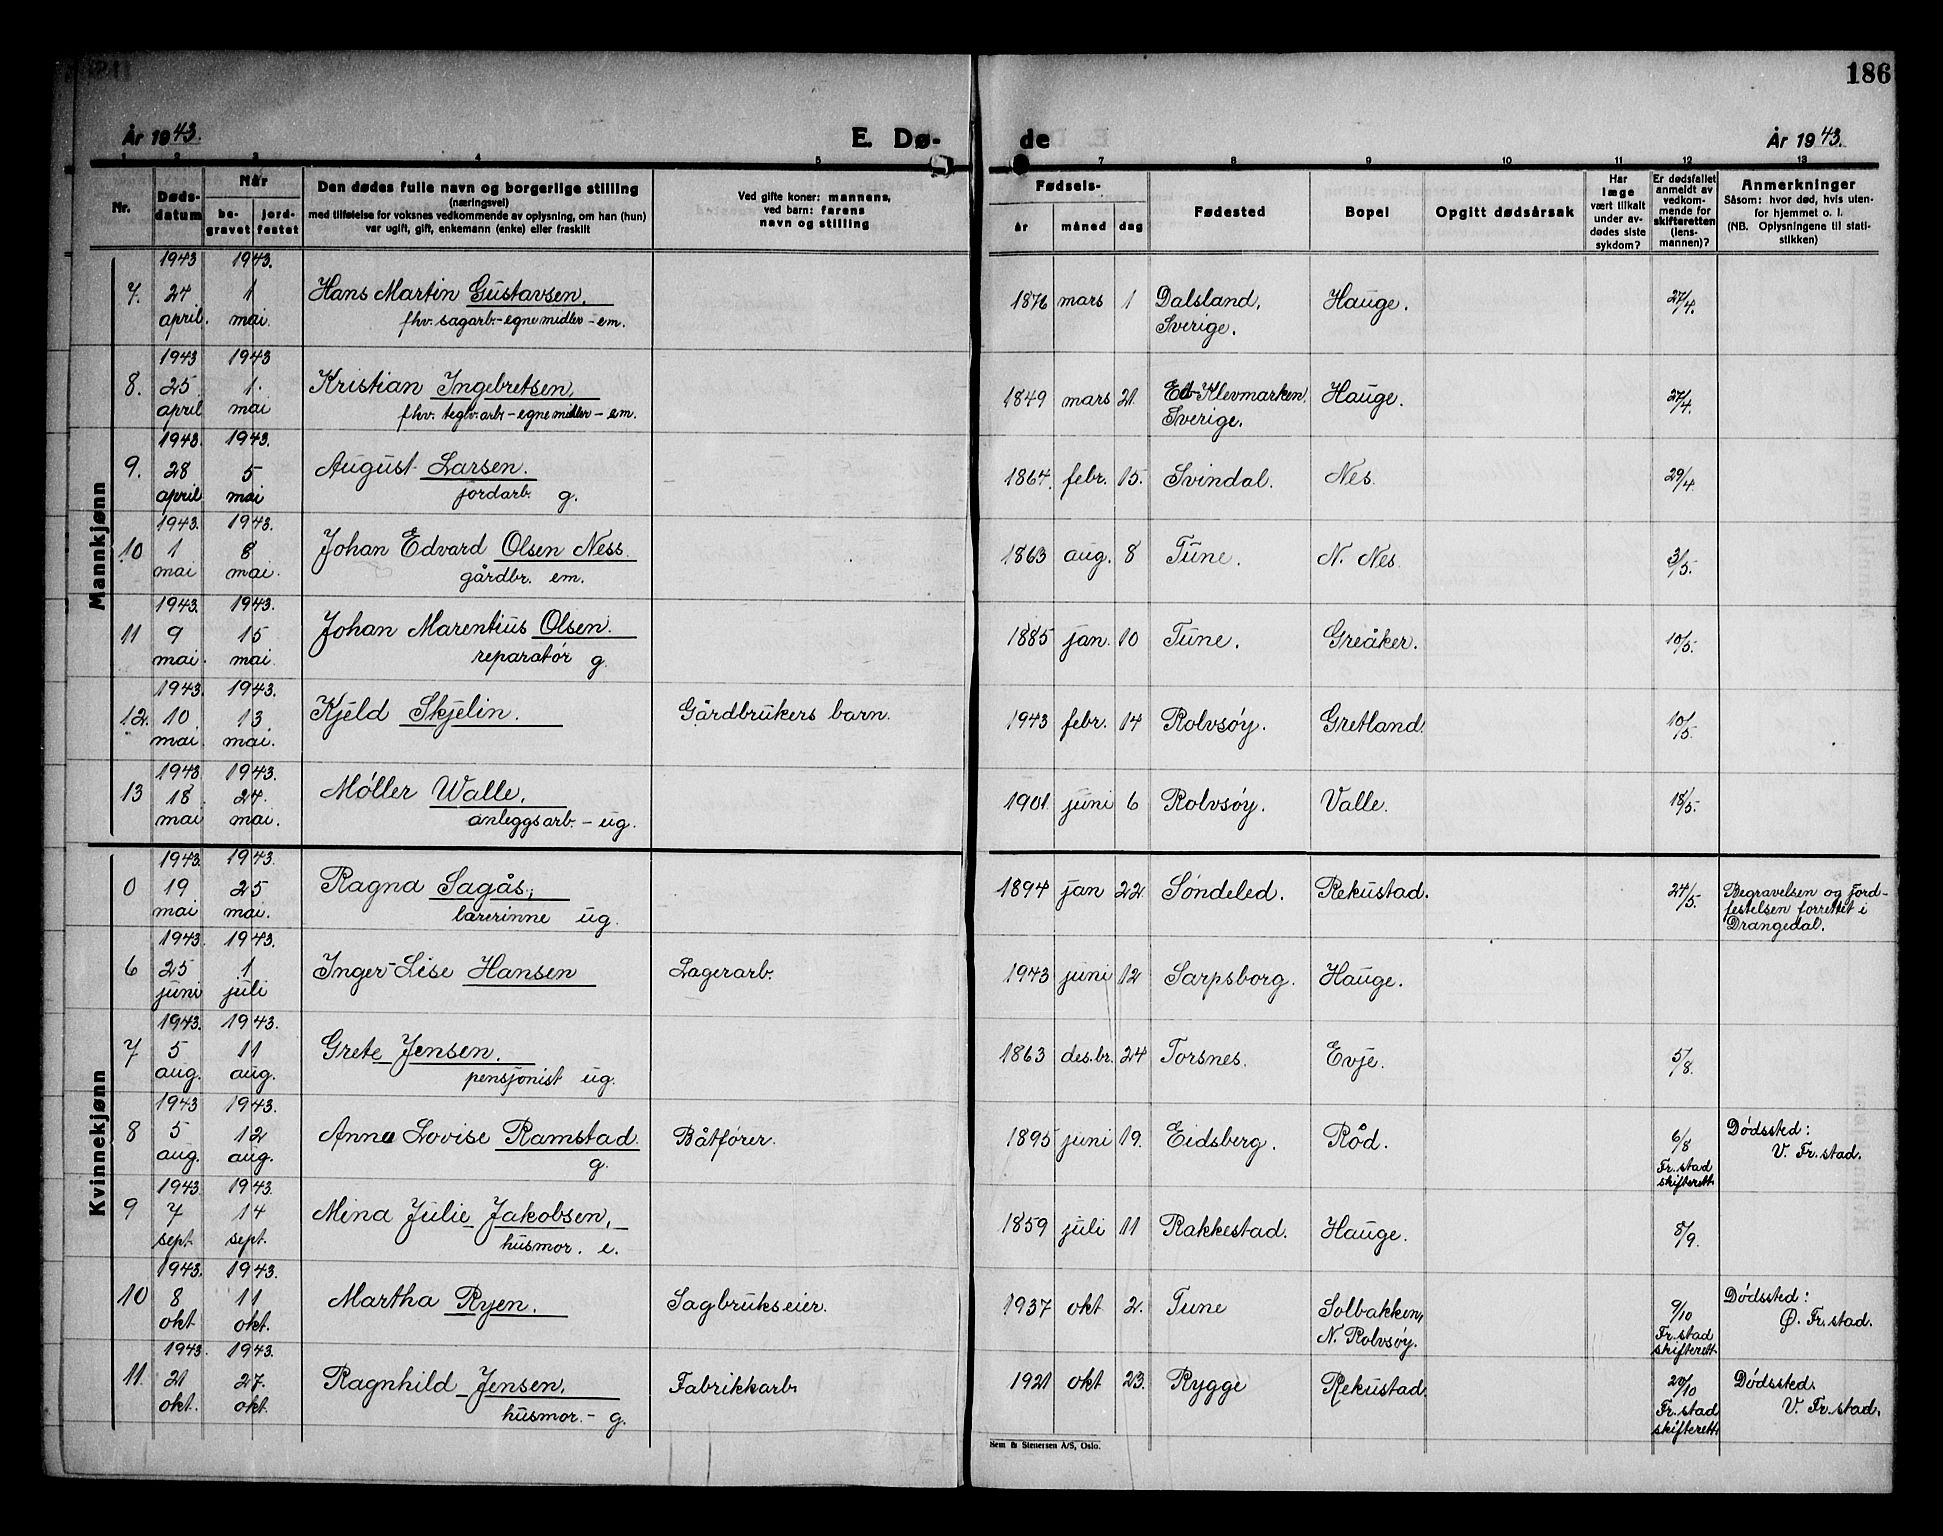 186
År 1943.
E. Dø-
de
År 1943.
1 2 3 4 5 7 8 9 10 11 12 13
Nr.
Døds-
datum
Når
be-
gravet
jord-
festet
Den dødes fulle navn og borgerlige stilling
(næringsvei)
med tilføielse for voksnes vedkommende av oplysning, om han (hun)
var ugift, gift, enkemann (enke) eller fraskilt
Ved gifte koner: mannens,
ved barn: farens
navn og stilling
Fødsels-
år måned dag
Fødested
Bopel
Opgitt dødsårsak
Har
læge
vært tilkalt
under av-
dødes siste
sykdom?
Er dødsfallet
anmeldt av
vedkom-
mende for
skifteretten
(lens-
mannen)?
Anmerkninger
Såsom: hvor død, hvis uten-
for hjemmet o. l.
(NB. Oplysningene til stati-
stikken)
Mannkjønn
1943 1943.
7. 24 1 Hans Martin Gustavsen, 1876 mars 1 Dalsland, Hauge. 27/4.
april. mai. fhv. sagarb. - egne midler - em. Sverige.
1943 1943
8. 25 1. Kristian Ingebretsen, 1849 mars 21. Ed-Klevmarken, Hauge. 27/4.
april mai fhv. teglv.arb - egne midler - em. Sverige.
1943 1943.
9. 28 5 August Larsen. 1864. febr. 15. Svindal. Nes. 29/4.
april mai jordarb. g.
1943. 1943.
10 1 8 Johan Edvard Olsen Ness. 1863 aug. 8 Tune. N. Nes. 3/5.
mai mai. gårdbr. em.
1943. 1943.
11 9 15 Johan Marentius Olsen. 1885 jan. 10 Tune. Greåker. 10/5.
mai. mai. reparatør g.
1943. 1943.
12. 10 13 Kjeld Skjelin. Gårdbrukers barn. 1943 febr. 14 Rolvsøy. Gretland. 10/5.
mai. mai.
1943 1943.
13 18 24. Møller Walle. 1901 juni 6 Rolvsøy. Valle. 18/5.
mai mai. anleggsarb. - ug.
Kvinnekjønn
1943. 1943.
0 19 25 Ragna Sagås; 1894 jan 22. Søndeled. Rekustad. 24/5. Begravelsen og jord-
mai mai. lærerinne ug. festelsen forrettet i
Drangedal.
1943. 1943.
6 25 1 Inger-Lise Hansen Lagerarb. 1943 juni 12 Sarpsborg. Hauge.
juni juli
1943. 1943.
7 5 11 Grete Jensen. 1863 des.br. 24 Torsnes. Evje. 5/8.
aug. aug. pensjonist ug.
1943 1943.
8 5 12 Anna Lovise Ramstad Båtfører. 1895 juni 19. Eidsberg. Rød. 6/8 Dødssted:
aug. aug. g. Fr.stad V. Fr.stad.
skifterett.
1943. 1943.
9 7 14 Mina Julie Jakobsen, 1859 juli 11 Rakkestad. Hauge. 8/9.
sept. sept. husmor. e.
1943. 1943.
10 8 11 Martha Ryen. Sagbrukseier. 1937 okt 2. Tune Solbakken, 9/10 Dødssted:
okt okt. N. Rolvsøy. Fr.stad Ø. Fr.stad.
skifterett.
1943. 1943.
11. 21 27. Ragnhild Jensen, Fabrikkarb. 1921 okt 23. Rygge Rekustad. Dødssted.
okt. okt husmor. - g. Fr.stad V. Fr.stad.
skifterett.
Sem & Stenersen A/S, Oslo.